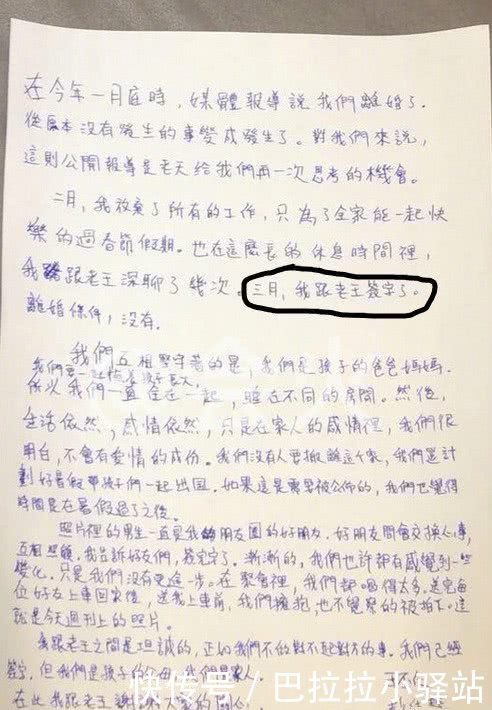 在今年一月底時，媒體報導說我們離婚了。
從原本沒有發生的事變成發生了。對我們來說，
這則公開報導是老天給我們再一次思考的機會。
二月，我放棄了所有的工作，只為了全家能一起快
樂的過春節假期。也在這麼長的休息時間裡，
我跟老王深聊了幾次。三月，我跟老王簽字了。
離婚條件，沒有。
我們互相堅守著的是，我們是孩子的爸爸媽媽。
我們要一起陪著孩子長大，
所以我們一直住在一起，睡在不同的房間。然後，
生活依然，感情依然，只是在家人的感情裡，我們很
明白，不會有愛情的成份。我們沒有人要搬離這个家，我們是計
劃好暑假帶孩子們一起出國。如果這是需要被公佈的，我們也覺得
時間是在暑假過了之後。
照片裡的男生一直是我的朋友圈的好朋友，好朋友間會交換心事，
互相照顧。我告訴好友們，簽完字了。漸漸的，我們也許都有感覺到一些
變化。只是我們沒有更進一步。在聚會裡，我們都喝得太多。送完每
位好友上車回家後，送我上車前，我們擁抱，也不覺累的被拍下。這
就是今天週刊上的照片。
我跟老王之間是坦誠的，正如我們不做對不起對方的事。我們已經
簽字，但我們是孩子的父母，我們是家人。
在此我跟老王謝謝
快传号 / 巴拉拉小驿站